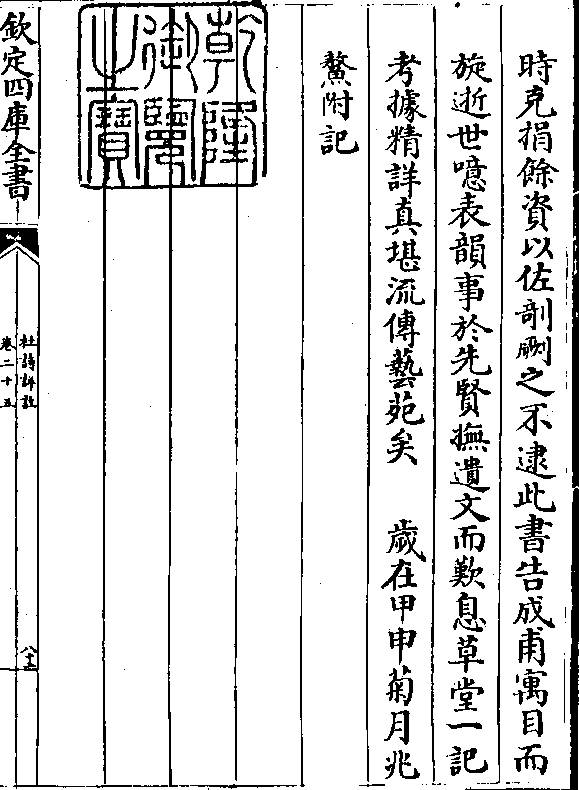 時克捐餘資以佐剞劂之不逮此書告成甫寓目而
旋逝世噫表韻事於先賢撫遺文而歎息草堂一記
考據精詳真堪流傳藝苑矣　歲在甲申菊月兆
鰲附記
乾隆
御覽
之寶
欽定四庫全書
杜詩詳註
卷二十五
八十三